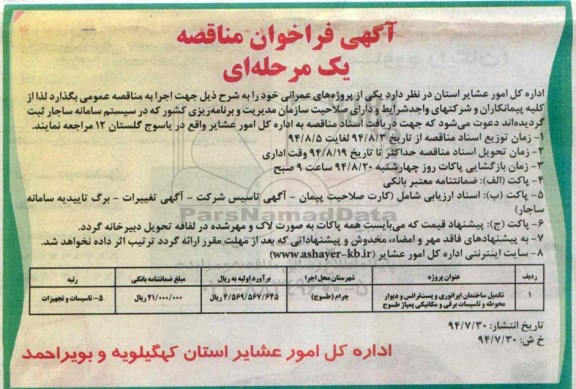 آگهی فراخوان مناقصه
یک مرحله‌ای
اداره کل امور عشایر استان در نظر دارد یکی از پروژه‌های عمرانی خود را به شرح ذیل جهت اجرا به مناقصه عمومی بگذارد لذا از
کلیه پیمانکاران و شرکتهای واجدشرایط و دارای صلاحیت سازمان مدیریت و برنامه‌ریزی کشور که در سیستم سامانه ساجار ثبت
گردیده‌اند دعوت می‌شود که جهت دریافت اسناد مناقصه به اداره کل امور عشایر واقع در یاسوج گلستان ۱۲ مراجعه نمایند.
۱- زمان توزیع اسناد مناقصه از تاریخ ۹۴/۸/۳ لغایت ۹۴/۸/۵
۲- زمان تحویل اسناد مناقصه حداکثر تا تاریخ ۹۴/۸/۱۹ وقت اداری
۳- زمان بازگشایی پاکات روز چهارشنبه ۹۴/۸/۲۰ ساعت ۹ صبح
۴- پاکت (الف): ضمانتنامه معتبر بانکی
۵- پاکت (ب): اسناد ارزیابی شامل (کارت صلاحیت پیمان - آگهی تاسیس شرکت - آگهی تغییرات - برگ تاییدیه سامانه
ساجار)
۶- پاکت (ج): پیشنهاد قیمت که می‌بایست همه پاکات به صورت لاک و مهرشده در لفافه تحویل دبیرخانه گردد.
۷- به پیشنهادهای فاقد مهر و امضاء، مخدوش و پیشنهاداتی که بعد از مهلت مقرر ارائه گردد ترتیب اثر داده نخواهد شد.
۸- سایت اینترنتی اداره کل امور عشایر (www.ashayer-kb.ir)
ردیف عنوان پروژه شهرستان محل اجرا برآورد اولیه به ریال مبلغ ضمانتنامه بانکی رتبه
۱ تکمیل ساختمان اپراتوری و پست‌ترانس و دیوار محوطه و تاسیسات برقی و مکانیکی پمپاژ طسوج چرام (طسوج) ۴/۵۶۹/۵۶۷/۶۴۵ ریال ۲۱۰/۰۰۰/۰۰۰ ریال ۵- تاسیسات و تجهیزات
تاریخ انتشار: ۹۴/۷/۳۰
خ ش: ۹۴/۷/۳۰
اداره کل امور عشایر استان کهگیلویه و بویراحمد
ParsNamadData